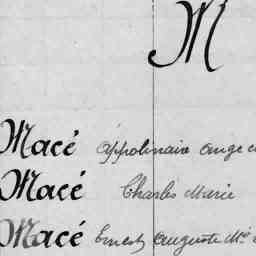 M
Macé Appolinaire Ange
Macé Charles Marie
Macé Ernest Auguste Mie